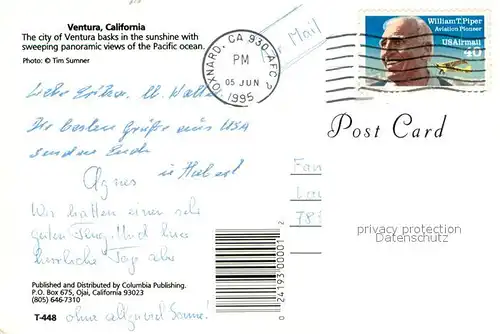 Ventura, California
The city of Ventura basks in the sunshine with
sweeping panoramic views of the Pacific ocean.
Photo: © Tim Sumner
Mail
OXNARD, CA 930 AFC 2
PM
05 JUN
1995
William T. Piper
Aviation Pioneer
USAirmail
40
Post Card
Liebe Erika u. Walter
Die besten Grüße aus USA
senden Euch
Agnes u Hubert
Wir hatten einen sehr
guten Flug. Und hier
herrliche Tage aber
ohne allzuviel Sonne!
Fam
783
privacy protection
Datenschutz
Published and Distributed by Columbia Publishing.
P.O. Box 675, Ojai, California 93023
(805) 646-7310
T-448
0 24193 00001 2